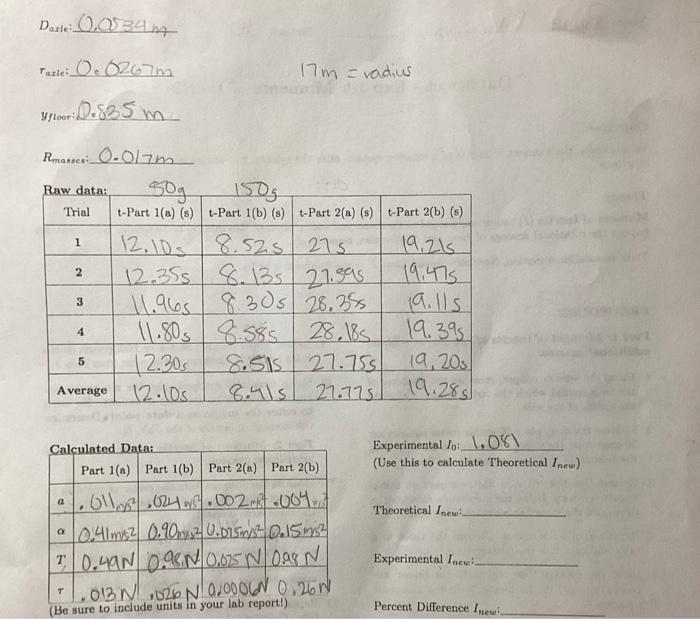 Daxle: 0.0534m
raxle: 0.0267m
17m = radius
yfloor: 0.835 m
Rmasses: 0.017m
Raw data:
50g 150g
Trial t-Part 1(a) (s) t-Part 1(b) (s) t-Part 2(a) (s) t-Part 2(b) (s)
1 12.10s 8.52s 27s 19.21s
2 12.35s 8.13s 27.59s 19.47s
3 11.96s 8.30s 28.35s 19.11s
4 11.80s 8.58s 28.18s 19.39s
5 12.30s 8.51s 27.75s 19.20s
Average 12.10s 8.41s 27.77s 19.28s
Calculated Data:
Part 1(a) Part 1(b) Part 2(a) Part 2(b)
a .011m/s² .024m/s² .002m/s² .004m/s²
α 0.41m/s² 0.90m/s² 0.075m/s² 0.15m/s²
T, 0.49N 0.98N 0.025N 0.98N
τ .013N .026N 0.0006N 0.26N
(Be sure to include units in your lab report!)
Experimental I0: 1.081
(Use this to calculate Theoretical Inew)
Theoretical Inew:
Experimental Inew:
Percent Difference Inew: